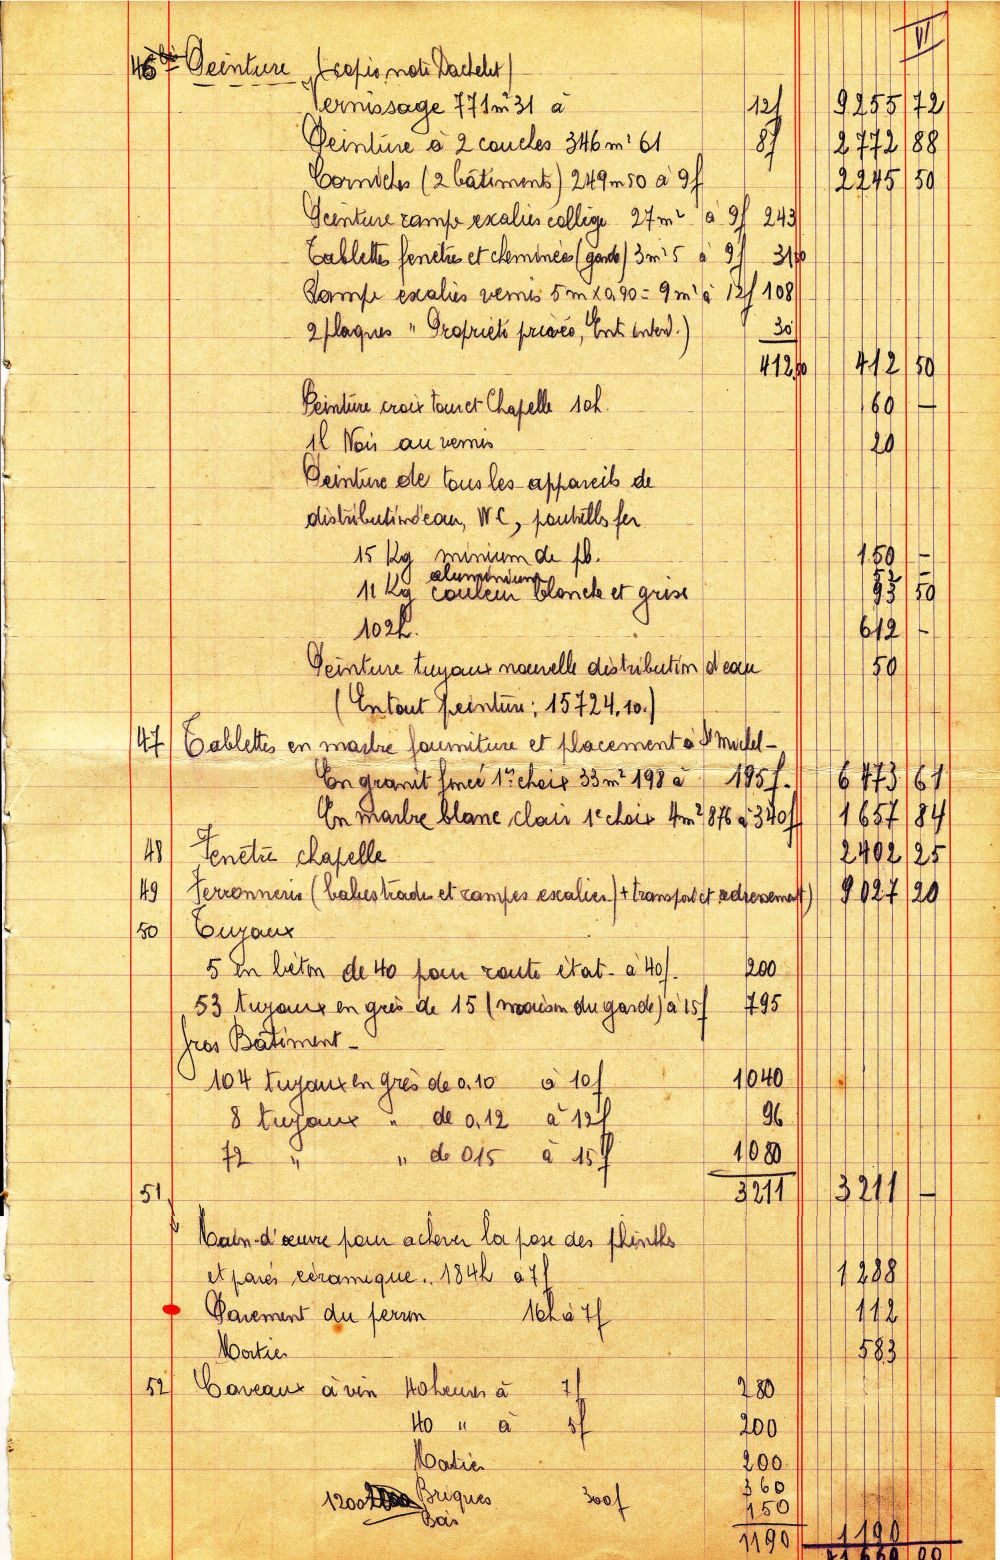 VI
46 bis Peinture (copie note Dachelet)
Vernissage 771m²31 à 12f 9255 72
Peinture à 2 couches 346m² 61 8f 2772 88
Corniches (2 bâtiments) 249m50 à 9f 2245 50
Peinture rampe escalier collège 27m² à 9f 243
Tablettes fenêtres et cheminées (garde) 3m²5 à 9f 31,50
Rampe escalier vernis 5m x 0,90 = 9m² à 12f 108
2 plaques " Propriété privée, Ent. interd.) 30
412,50 412 50
Peinture croix tour et Chapelle 10h. 60 —
1l Noir au vernis 20
Peinture de tous les appareils de
distribution d'eau, WC, poutrelles fer
15 Kg minium de pb. 150 —
aluminium 52 —
11 Kg couleur blanche et grise 93 50
102h. 612 —
Peinture tuyaux nouvelle distribution d'eau 50
(En tout peinture : 15724,10.)
47 Tablettes en marbre fourniture et placement à St Michel -
En granit foncé 1er choix 33m² 198 à 195f. 6473 61
En marbre blanc clair 1e choix 4m² 876 à 340f 1657 84
48 Fenêtre chapelle 2402 25
49 Ferronnerie (balustrades et rampes escalier) + transport et redressement) 9027 20
50 Tuyaux
5 en béton de 40 pour route état - à 40f. 200
53 tuyaux en grès de 15 (maison du garde) à 15f 795
Gros Bâtiment -
104 tuyaux en grès de 0.10 à 10f 1040
8 tuyaux " de 0,12 à 12f 96
72 " " de 015 à 15f 1080
51 3211 3211 —
Main-d'œuvre pour achever la pose des plinthes
et pavés céramique.. 184h à 7f 1288
Pavement du perron 16h à 7f 112
Mortier 583
52 Caveaux à vin 40 heures à 7f 280
40 " à 5f 200
Mortier 200
1200 Briques 300f 360
Bois 150
1190 1190